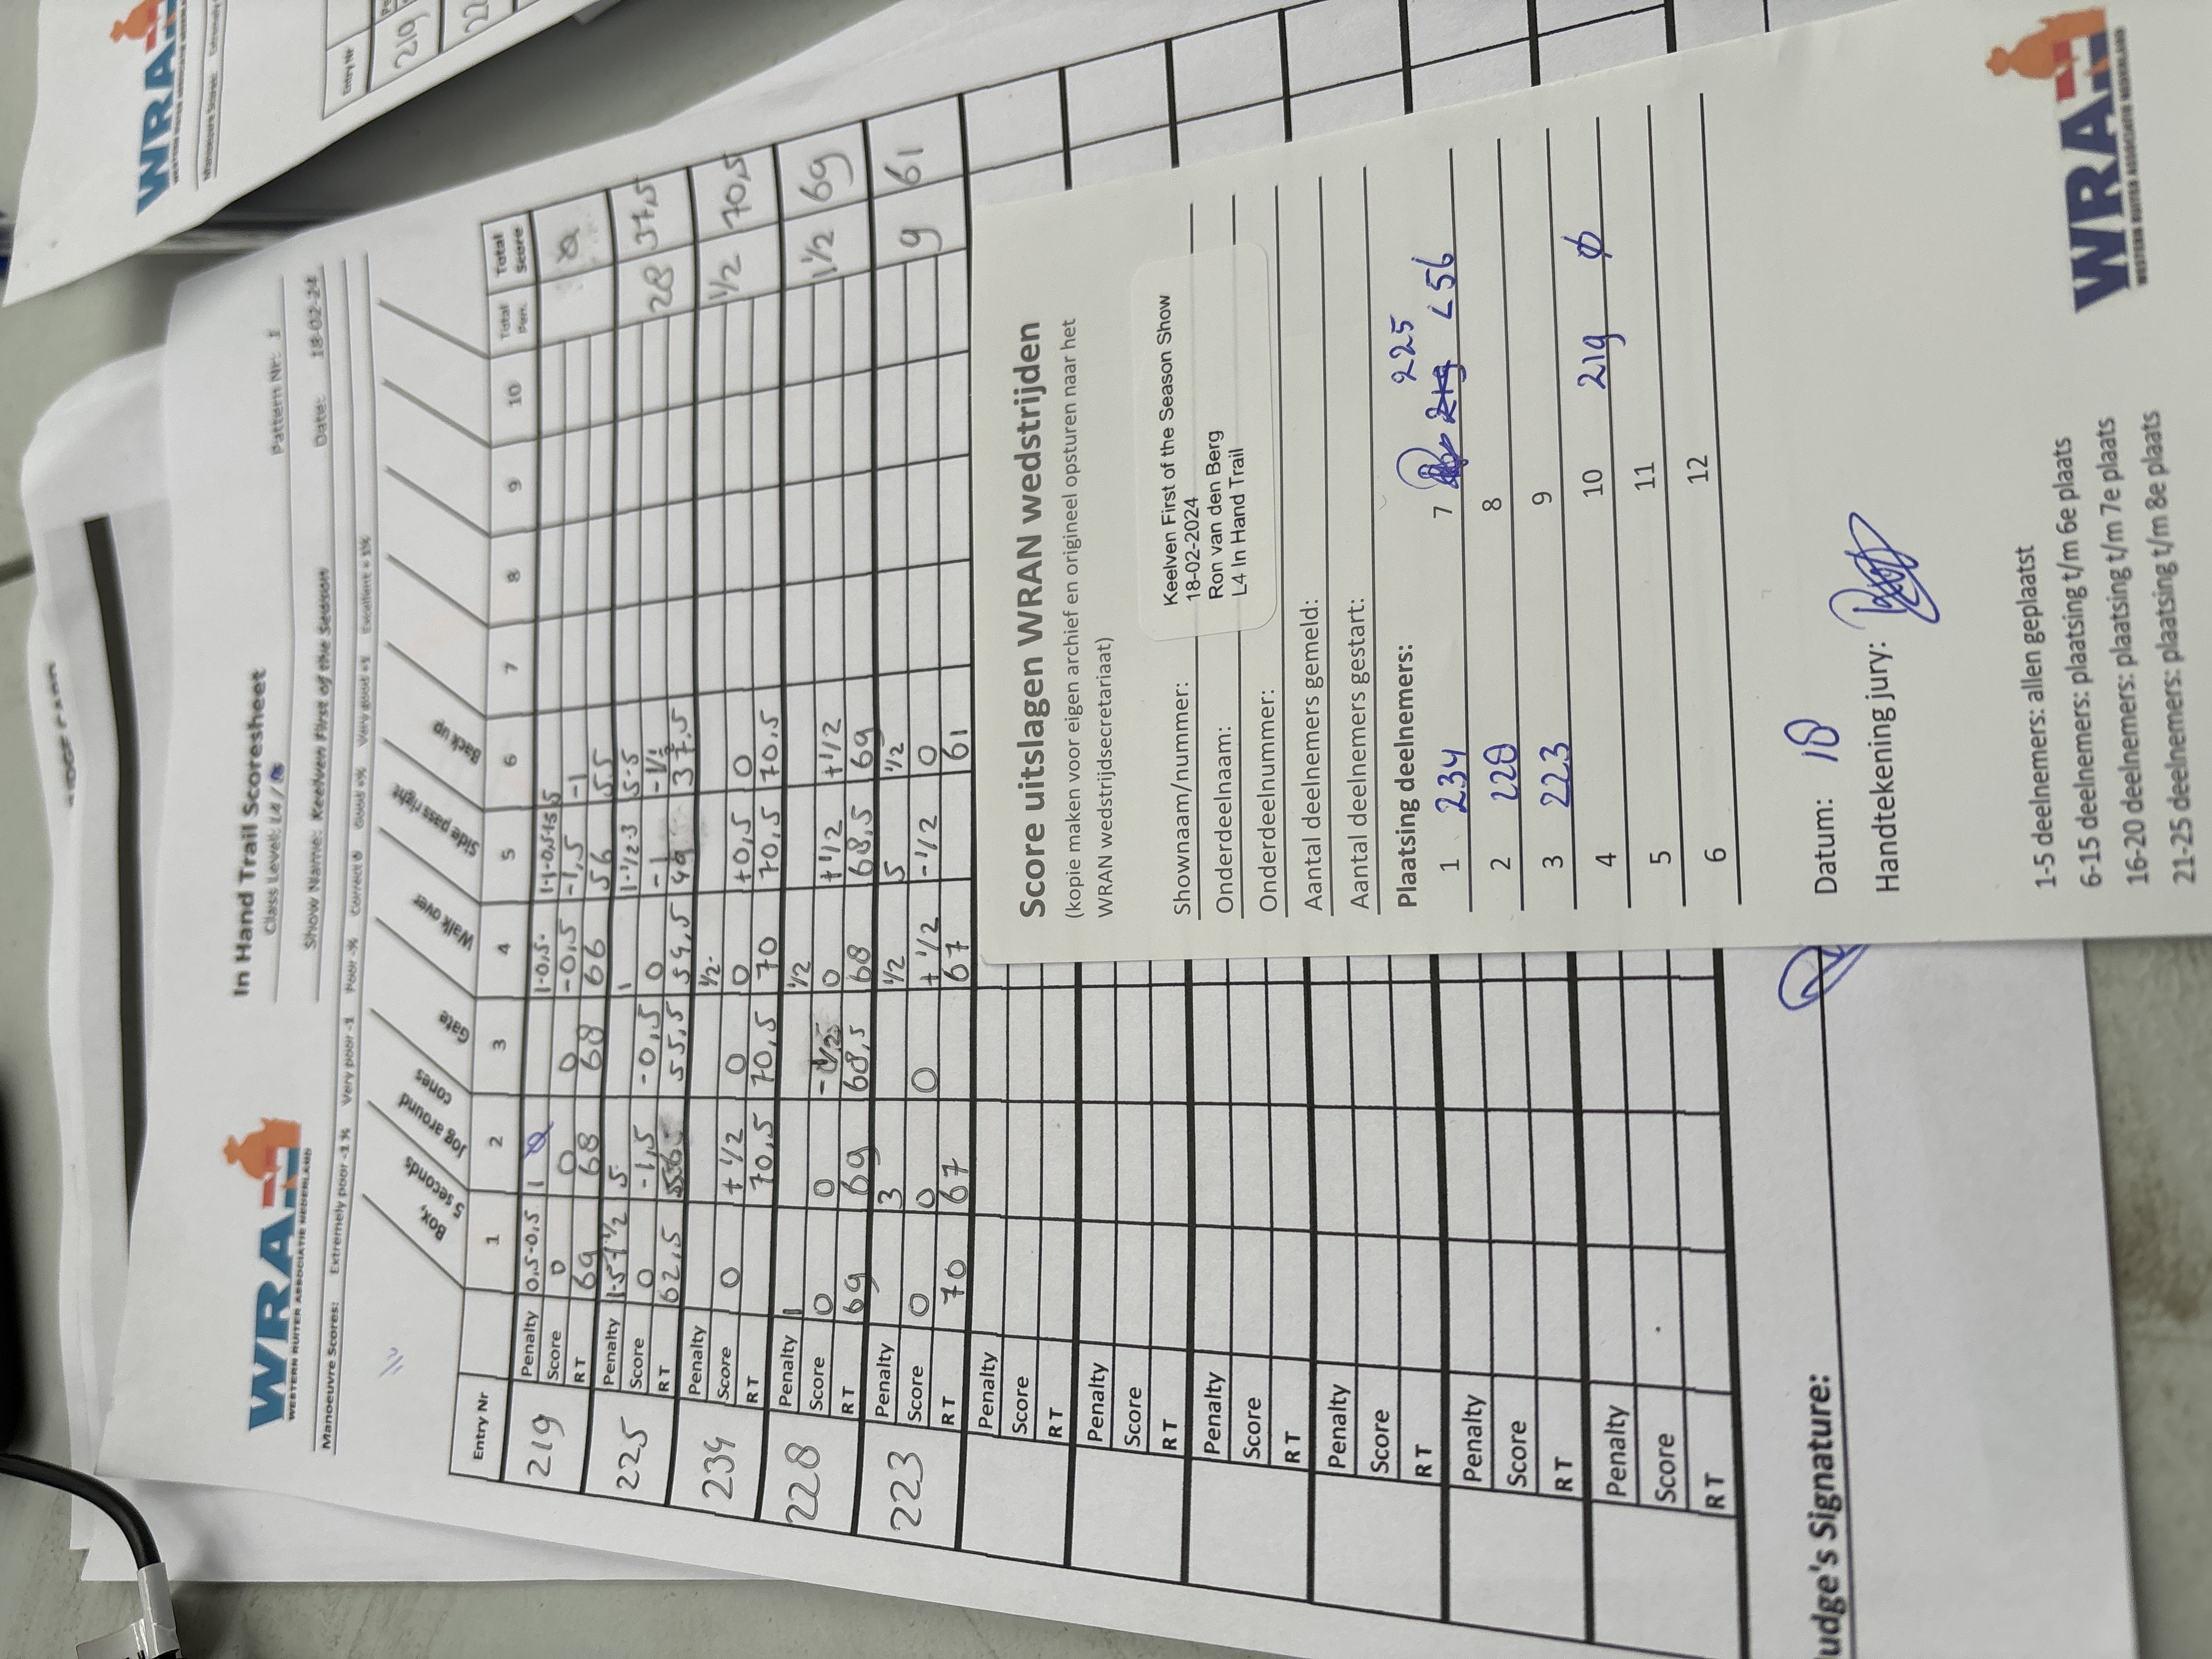 WRAN
WESTERN RUITER ASSOCIATIE NEDERLAND
In Hand Trail Scoresheet
Class Level: L4 /
Pattern Nr: 1
Show Name: Keelven First of the Season
Date: 18-02-24
Manoeuvre Scores: Extremely poor -1 ½ Very poor -1 Poor -½ Correct 0 Good +½ Very good +1 Excellent + 1½
Box, 5 seconds
Jog around cones
Gate
Walk over
Side pass right
Back up
Entry Nr 1 2 3 4 5 6 7 8 9 10 Total Pen. Total Score
219
Penalty 0,5-0,5 1 1-0,5- 1-1-0,5-15 5
Score 0 0 0 -0,5 -1,5 -1
RT 69 68 68 66 56 55
225
Penalty 5 1 1-½-3 5-5 28 37,5
Score 0 -1,5 -0,5 0 -1 -1½
RT 62,5 55,5 54,5 49 37,5
234
Penalty ½- ½ 70,5
Score 0 +½ 0 0 +0,5 0
RT 70,5 70,5 70 70,5 70,5
228
Penalty 1 ½ 1½ 69
Score 0 0 0 +½ +½
RT 69 69 68,5 68 68,5 69
223
Penalty 3 ½ 5 ½ 9 61
Score 0 0 0 +½ -½ 0
RT 70 67 67 61
Penalty
Score
RT
Penalty
Score
RT
Penalty
Score
RT
Penalty
Score
RT
Penalty
Score
RT
Penalty
Score
RT
udge's Signature:
Score uitslagen WRAN wedstrijden
(kopie maken voor eigen archief en origineel opsturen naar het
WRAN wedstrijdsecretariaat)
Shownaam/nummer:
Onderdeelnaam:
Onderdeelnummer:
Keelven First of the Season Show
18-02-2024
Ron van den Berg
L4 In Hand Trail
Aantal deelnemers gemeld:
Aantal deelnemers gestart:
Plaatsing deelnemers:
225
1 234 7 219 L 56
2 228 8
3 223 9
4 10 219 φ
5 11
6 12
Datum: 18
Handtekening jury:
1-5 deelnemers: allen geplaatst
6-15 deelnemers: plaatsing t/m 6e plaats
16-20 deelnemers: plaatsing t/m 7e plaats
21-25 deelnemers: plaatsing t/m 8e plaats
WRAN
WESTERN RUITER ASSOCIATIE NEDERLAND
WRAN
Manoeuvre Scores: Extremely
Entry Nr
219